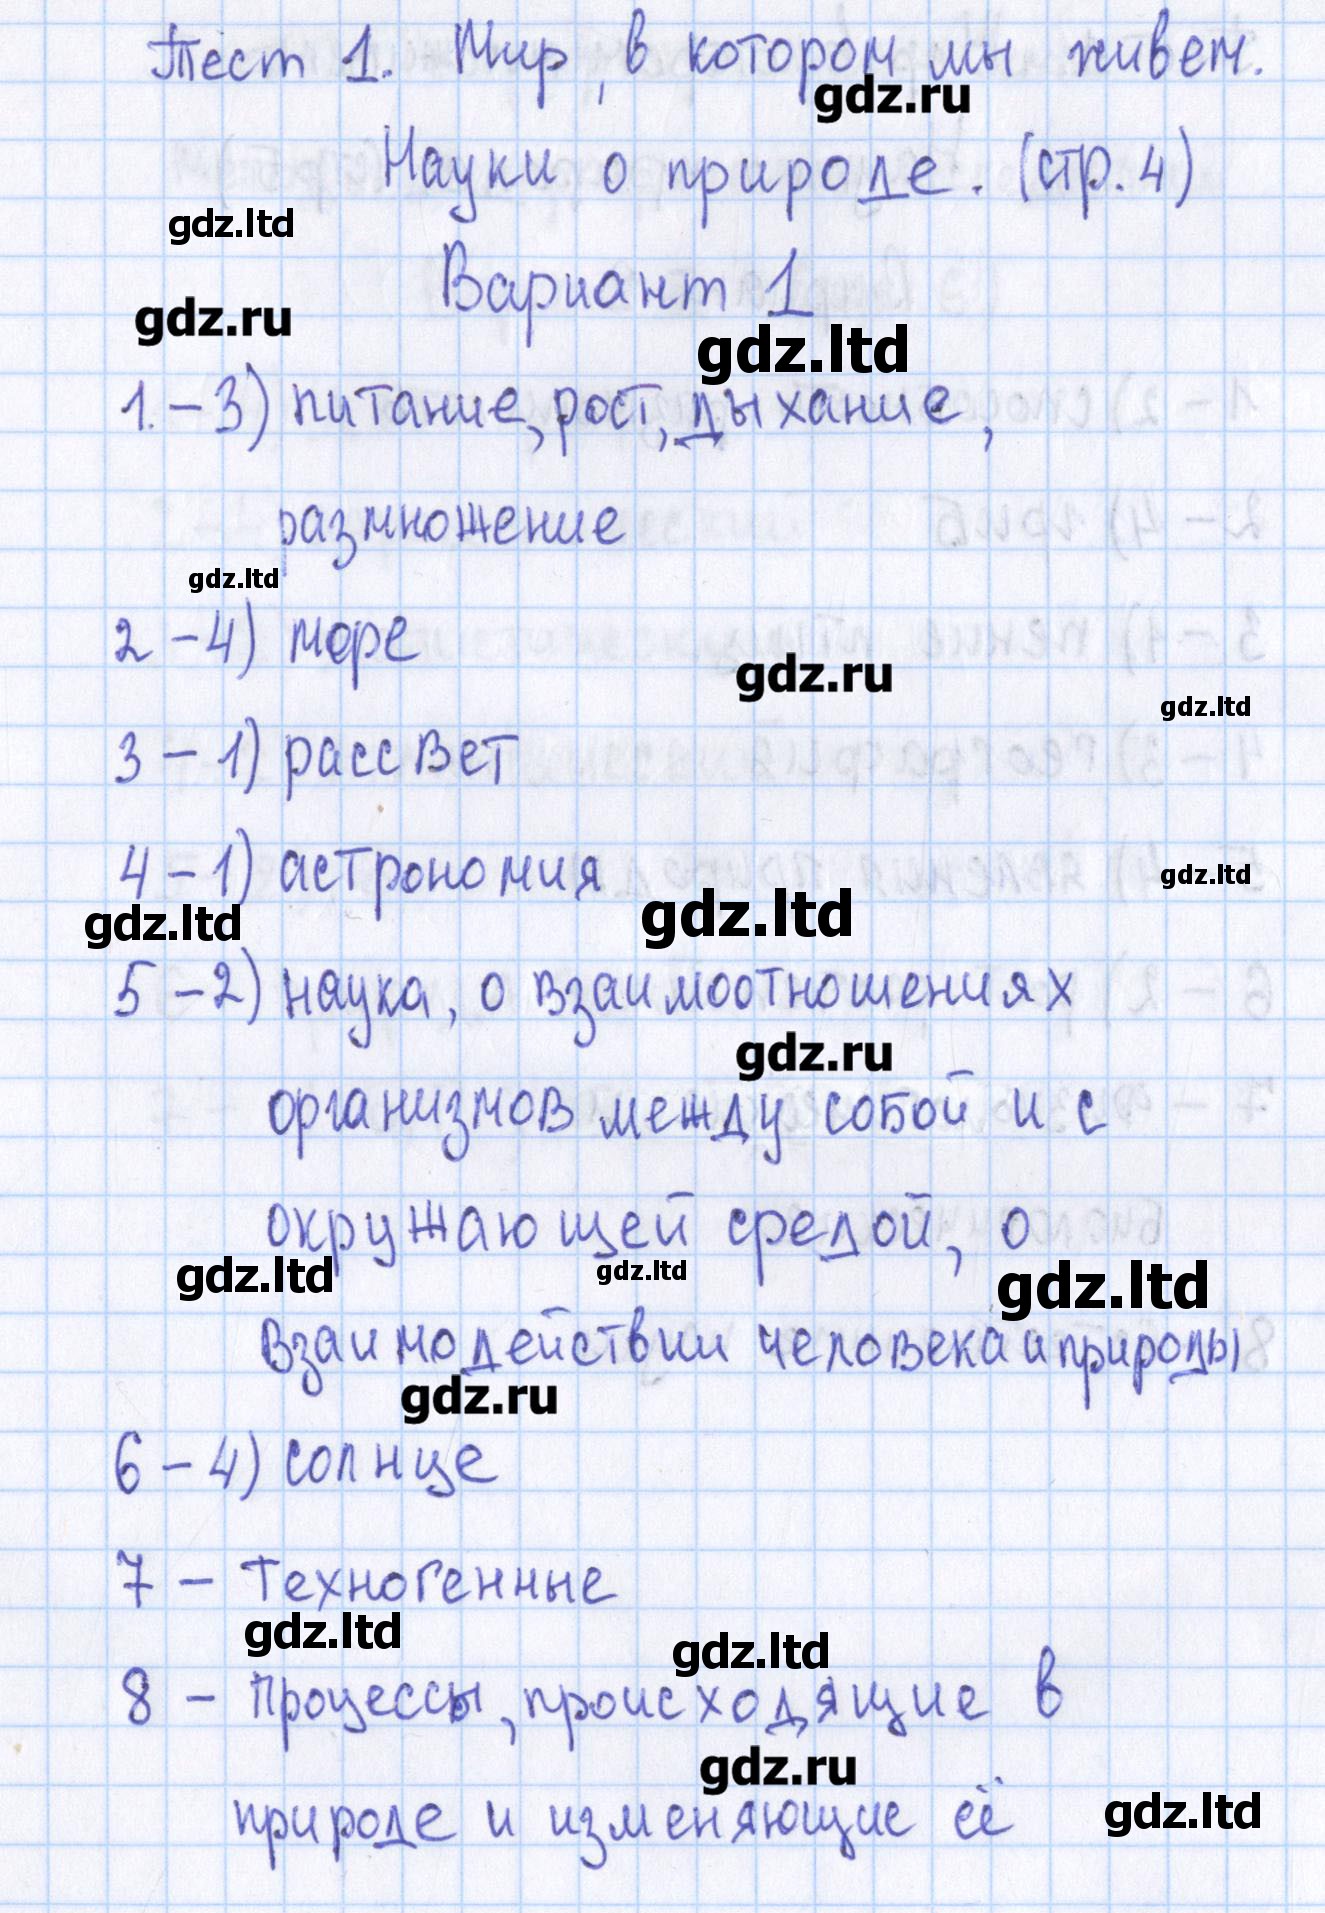 Тест 1. Мир, в котором мы живем.
gdz.ru
Науки о природе. (стр. 4)
gdz.ltd
Вариант 1
gdz.ru
gdz.ltd
1. – 3) питание, рост, дыхание,
размножение
gdz.ltd
2 – 4) море
gdz.ru
gdz.ltd
3 – 1) рассвет
4 – 1) астрономия
gdz.ltd
gdz.ltd
gdz.ltd
5 – 2) наука, о взаимоотношениях
gdz.ru
организмов между собой и с
окружающей средой, о
gdz.ltd
gdz.ltd
gdz.ltd
взаимодействии человека и природы
gdz.ru
6 – 4) солнце
7 – Техногенные
gdz.ltd
gdz.ltd
8 – процессы, происходящие в
gdz.ru
природе и изменяющие её
gdz.ltd